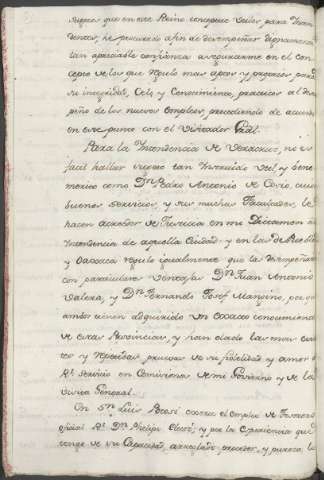 sugeto que en este Reino conceptue utiles, para Inten
dentes, he procurado afin de desempeñar dignamente
tan apreciable confianza asegurarme en el con
cepto de los que regulo mas aptos y proprios para
su integridad, Celo, y Conocimiento, practicos al desem
peño de los nuevos Empleos, procediendo de acuerdo
en este punto con el Visitador Gral.
Para la Intendencia de Veracruz, no es
facil hallar sugeto tan Instruido, util, y bene
merito como Dn. Pedro Antonio de Cosio, cuios
buenos servicios, y sus muchas facultades, le
hacen acrehedor de Justicia en mi Dictamen à la
Intendencia de aquella Ciudad: y en las de Puebla
y Oaxaca regulo igualmente que la desempeñarán
con particulares ventajas Dn. Juan Antonio
Valera, y Dn. Fernando Josef Mangino, por que
ambos tienen adquirido un exacto conocimiento
de estas Provincias, y han dado las mas
y repetidas pruevas de su fidelidad y amor al
Rl. servicio en Comisiones de mi Govierno y de la
Visita General.
En Sn. Luis Potosi exerce el empleo de Tesorero
oficial Rl. Dn. Phelipe Cleere, y por la experiencia que
tengo de su Capacidad, arreglado proceder, y pureza, le